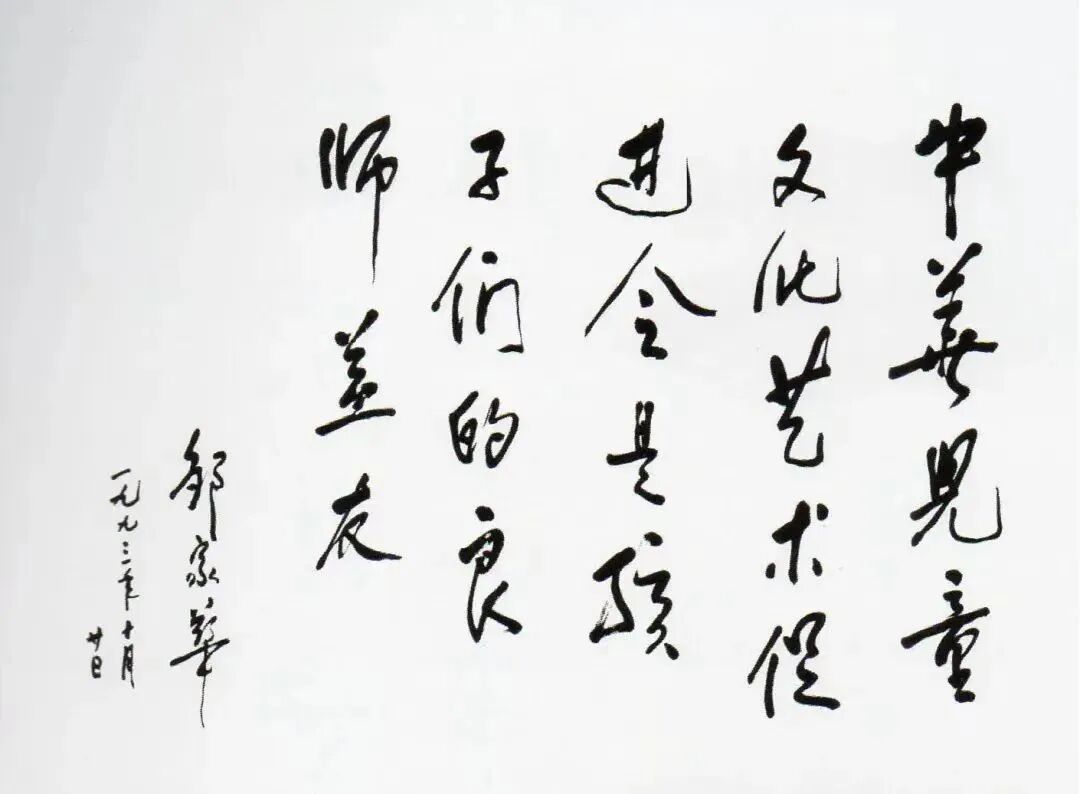 中華兒童
文化艺术促
进会是孩
子们的良
师益友
邹家華
一九九三年十月
廿日